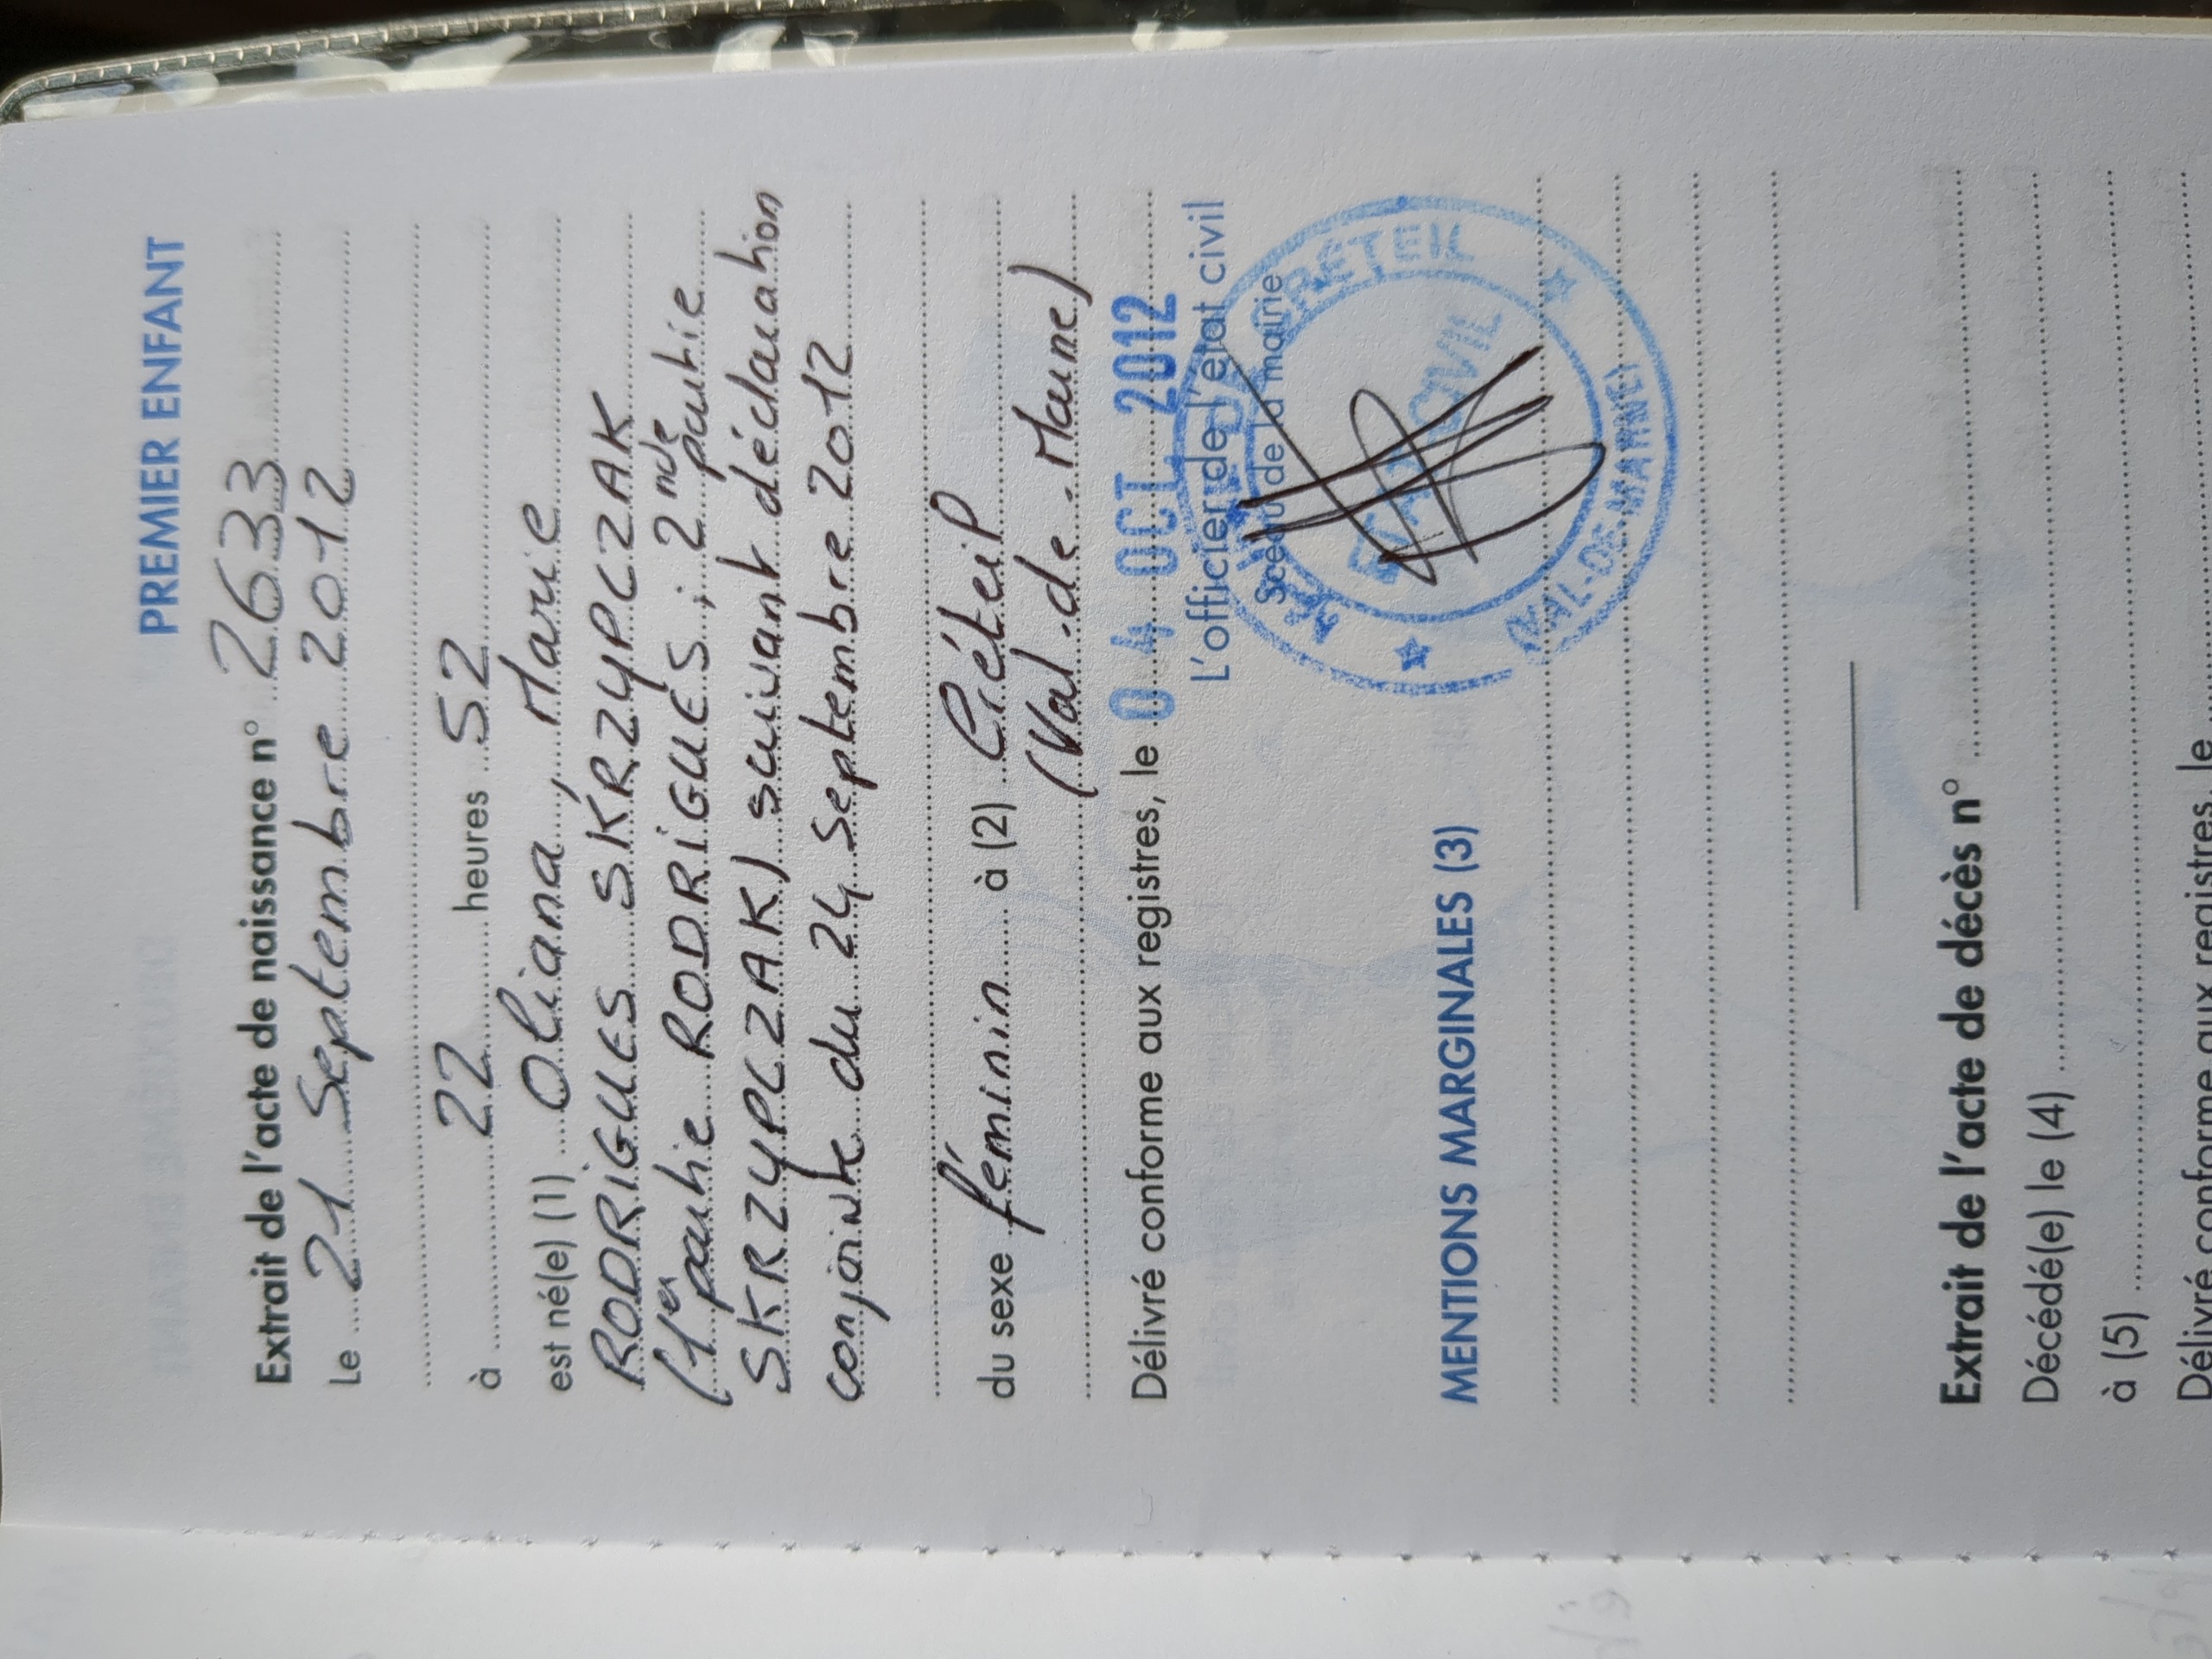 PREMIER ENFANT
Extrait de l'acte de naissance n° 2633
Le 21 Septembre 2012
à 22 heures 52
est né(e) (1) Oliana, Marie
RODRIGUES SKRZYPCZAK
(1re partie RODRIGUES ; 2nde partie
SKRZYPCZAK) suivant déclaration
conjointe du 24 septembre 2012
du sexe féminin à (2) Créteil
(Val-de-Marne)
Délivré conforme aux registres, le 04 OCT. 2012
L'officier de l'état civil
Sceau de la mairie
CRÉTEIL
ÉTAT CIVIL
(VAL-DE-MARNE)
MENTIONS MARGINALES (3)
Extrait de l'acte de décès n°
Décédé(e) le (4)
à (5)
Délivré conforme aux registres, le